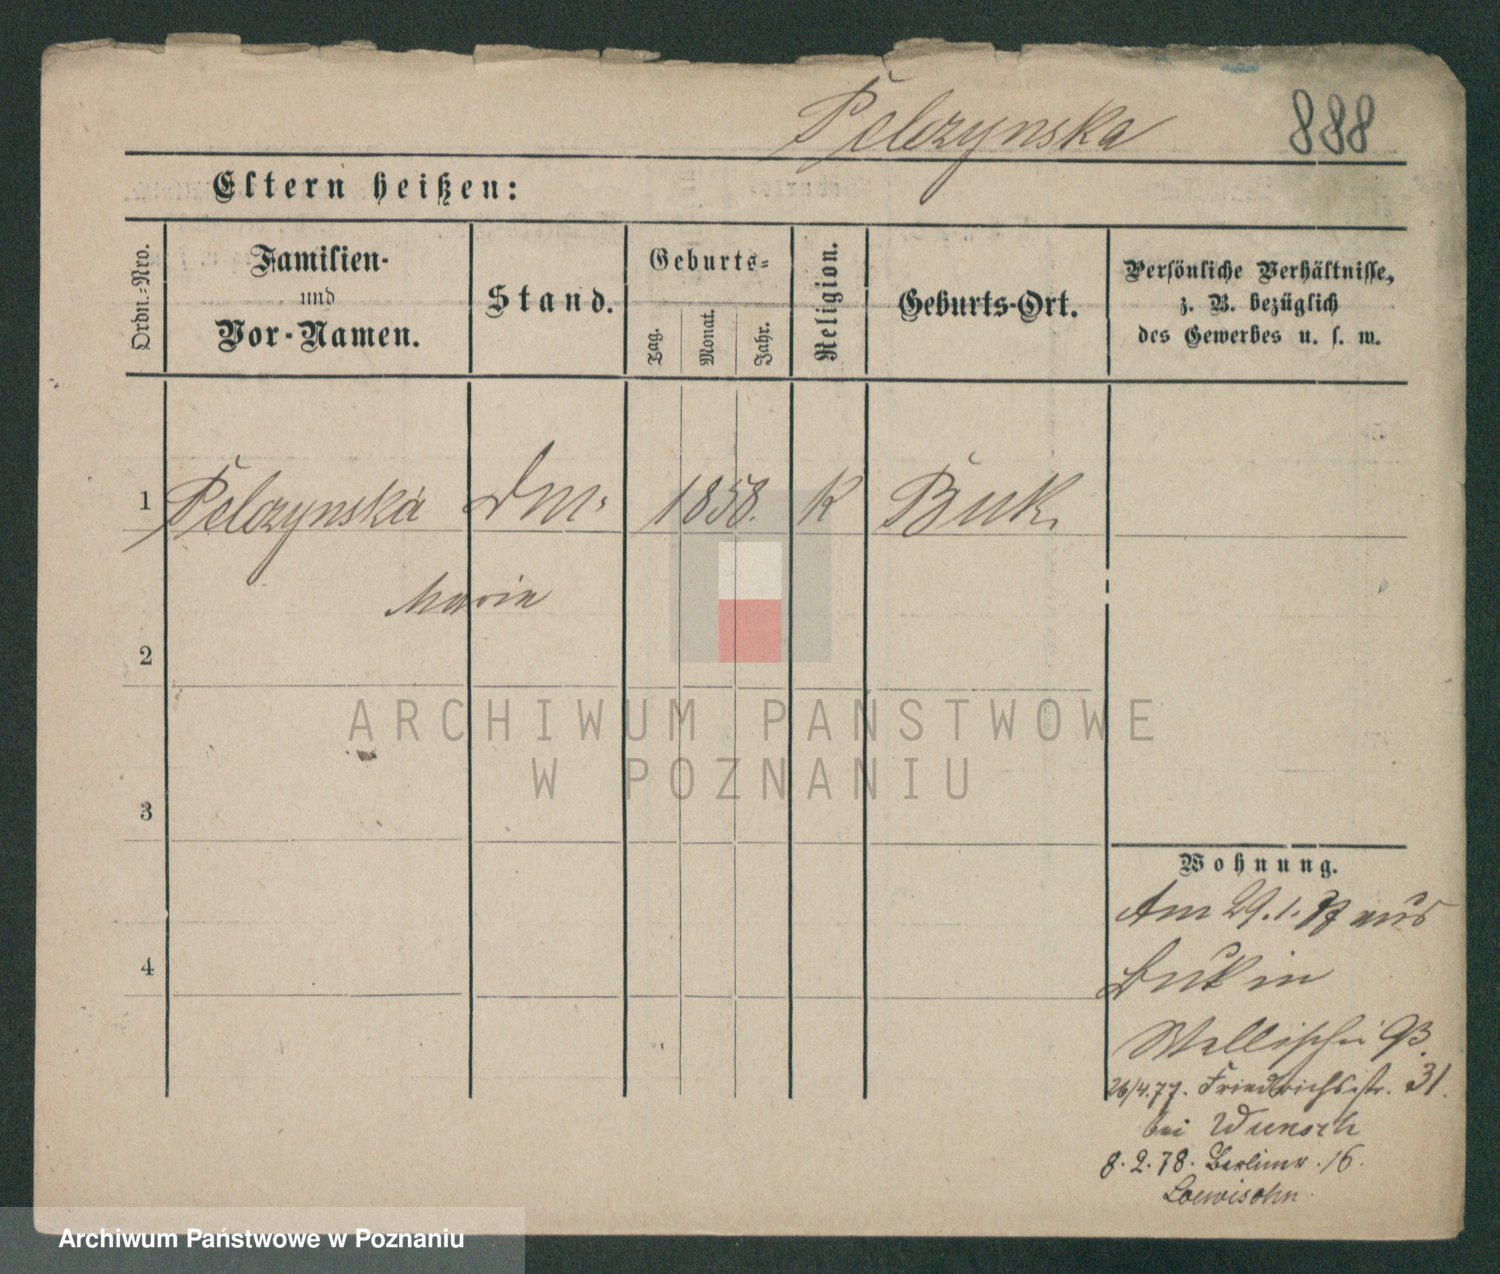 Pelczynska 888
Eltern heißen:
Ordn.-Nro.
Familien-
und
Vor-Namen.
Stand.
Geburts-
Tag.
Monat.
Jahr.
Religion.
Geburts-Ort.
Persönliche Verhältnisse,
z. B. bezüglich
des Gewerbes u. s. w.
1 Pelczynska 1858. K Buk.
Marie
2
3
4
Wohnung.
Am 29.1.77 aus
Buk in
Wallischei 93.
26/4.77. Friedrichsstr. 31.
bei Wunsch
8.2.78. Berliner. 16.
Loewisohn.
ARCHIWUM PANSTWOWE
W POZNANIU
Archiwum Państwowe w Poznaniu